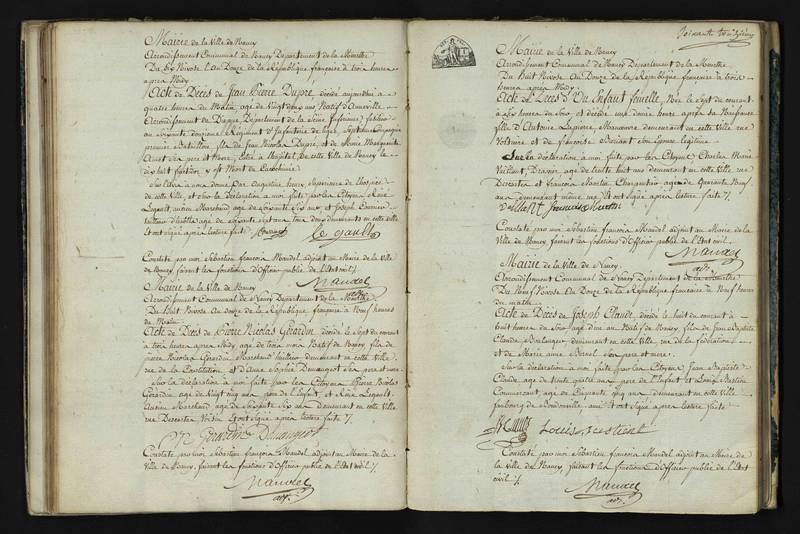 Mairie de la Ville de Nancy
Arrondissement Communal de Nancy Departement de la Meurthe
Du Nivose l'An Douze de la République française à trois heures
après Midy
Acte de Décès de Jean Pierre Dupré, décédé aujourd'hui à
quatre heures du Matin, agé de Vingt deux ans, Natif d'Anneville
Arrondissement de Dieppe, Département de la Seine Inférieure, fusilier
au Régiment d'Infanterie de ligne, Septième Compagnie
premier Bataillon, fils de Jean Nicolas Dupré, et de Marie Marguerite
ses père et Mère, entré à l'hôpital de cette Ville de Nancy le
dix huit fructidor, y est Mort de
Sur l'Extrait à nous donné Par Augustine henry, Supérieure de l'hospice
de cette Ville, et Sur la déclaration à moi faite par les Citoyens René
Legault, ancien Marchand agé de Soixante Six ans, et Joseph
agé de Soixante sept ans tous deux demeurants en cette Ville
Et ont signé après lecture faite /. le gault
Constaté par moi Sébastien françois Mandel adjoint au Maire de la Ville
de Nancy, faisant les fonctions d'Officier public de l'Etat civil /.
Mandel
adjt.
Mairie de la Ville de Nancy
Arrondissement Communal de Nancy Departement de la Meurthe
Du Huit Nivose An Douze de la République française à Neuf heures
du Matin
Acte de Décès de Pierre Nicolas Gérardin décédé le Sept du courant
à trois heures après Midy agé de trois mois Natif de Nancy fils de
pierre Nicolas Gérardin Marchand demeurant en cette Ville
rue de la Constitution et d'Anne Sophie ses père et mère
Sur la déclaration à moi faite par les Citoyens Pierre Nicolas
Gérardin agé de Vingt cinq ans père de l'Enfant, et René Legault
Ancien Marchand agé de Soixante Six ans demeurant en cette Ville
rue Descartes Voisin Et ont signé après lecture faite /.
Constaté par moi Sébastien françois Mandel adjoint au Maire de la
Ville de Nancy, faisant les fonctions d'Officier public de l'Etat civil /.
Mandel
adjt.
Soixante
Mairie de la Ville de Nancy
Arrondissement Communal de Nancy Departement de la Meurthe
Du Huit Nivose An Douze de la République française à trois
heures après Midy
Acte de Décès d'Un Enfant femelle, Née le Sept du courant
à Six heures du Soir et décédée une demie heure après Sa Naissance
fille d'Antoine Manoeuvre demeurant en cette Ville rue
Voltaire et de françoise Son Epouse légitime
Sur la déclaration à moi faite par les Citoyens Charles Marie
Vaillant, agé de trente huit ans demeurant en cette Ville rue
Descartes et François Martin Charpentier agé de Quarante Neuf
ans demeurant même rue, Et ont signé après lecture faite /.
Vaillant francois Martin
Constaté par moi Sébastien françois Mandel adjoint au Maire de la
Ville de Nancy, faisant les fonctions d'Officier public de l'Etat civil.
Mandel
adjt.
Mairie de la Ville de Nancy
Arrondissement Communal de Nancy Departement de la Meurthe
Du Neuf Nivose An Douze de la République française à Neuf heures
du matin
Acte de Décès de Joseph Claude, décédé le huit du courant à
huit heures du Soir agé d'un an Natif de Nancy, fils de Jean Baptiste
Claude Boulanger demeurant en cette Ville rue de la fédération
et de Marie Anne ses père et mère.
Sur la déclaration à moi faite par les Citoyens Jean Baptiste
Claude agé de trente quatre ans père de l'Enfant et Louis
Commerçant, agé de Cinquante cinq ans demeurant en cette Ville
faubourg de Et ont signé après lecture faite
Louis
Constaté par moi Sébastien françois Mandel adjoint au Maire de
la Ville de Nancy, faisant les fonctions d'Officier public de l'Etat
civil /.
Mandel
adjt.